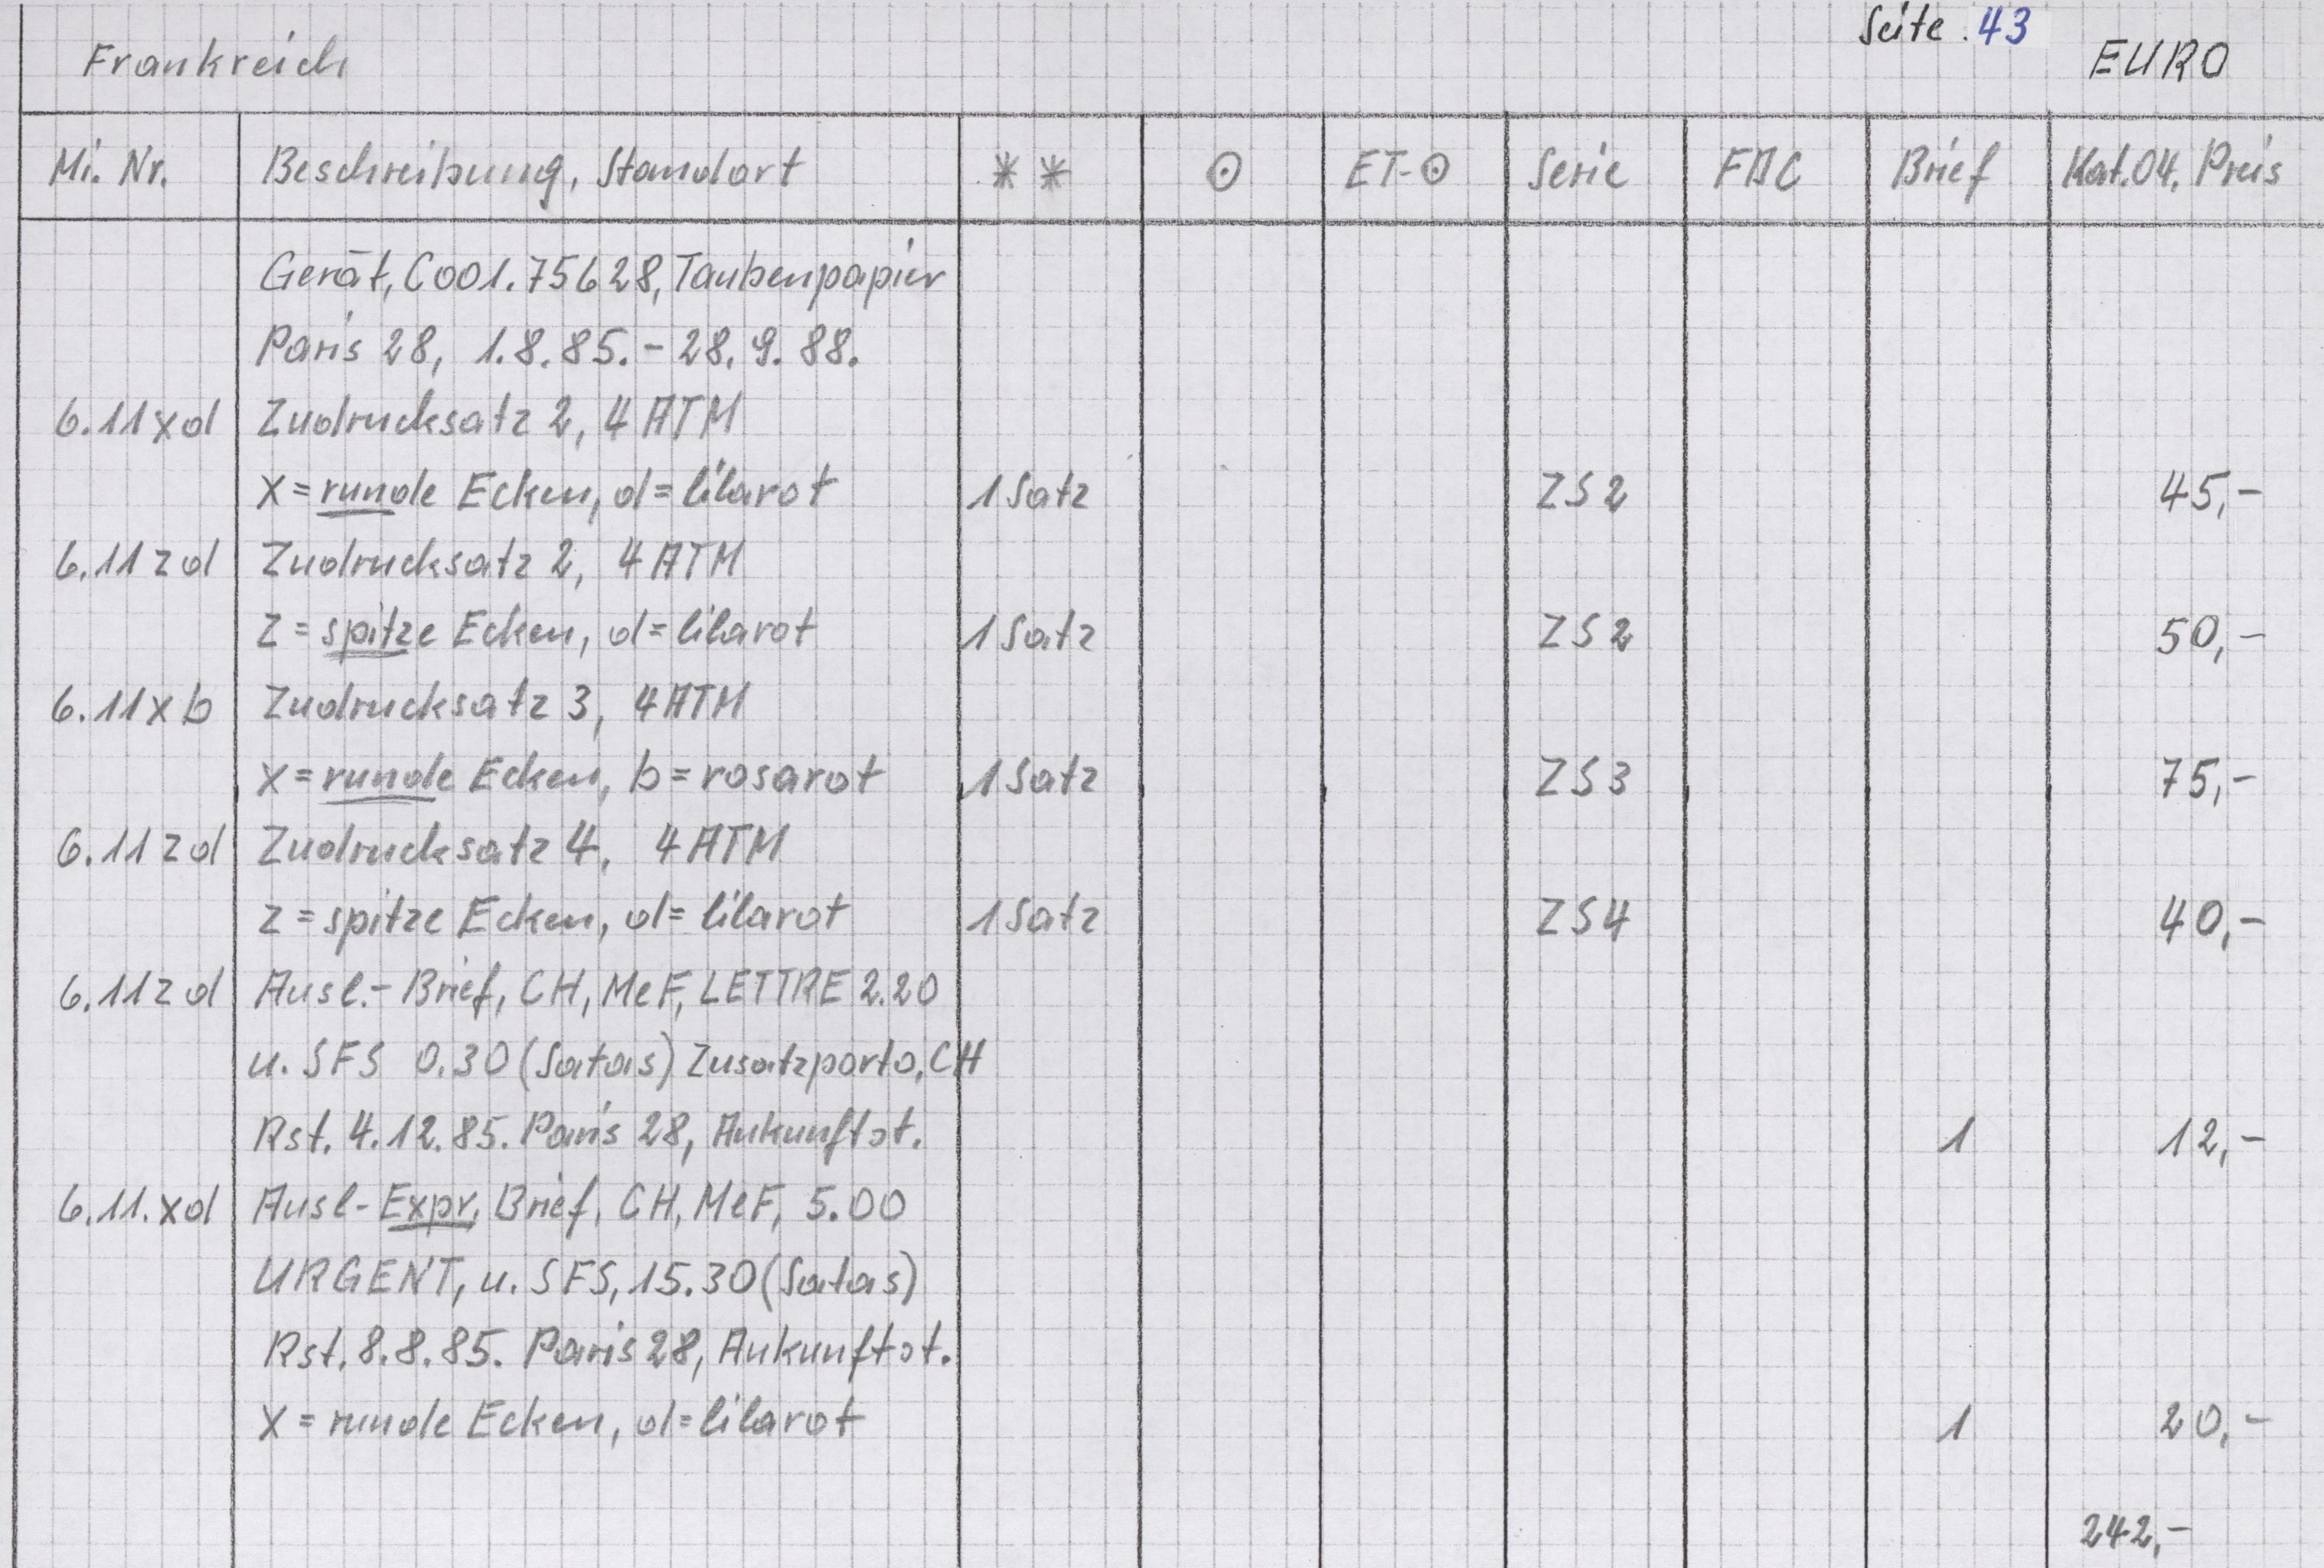 Seite . 43
Frankreich EURO
Mi. Nr. Beschreibung, Standort ** ⊙ ET-⊙ Serie FDC Brief Kat.04. Preis
Gerät, C001.75628, Taubenpapier
Paris 28, 1.8.85. - 28.9.88.
6.11xd Zudrucksatz 2, 4 ATM
x = runde Ecken, d = lilarot 1 Satz ZS2 45,-
6.11zd Zudrucksatz 2, 4 ATM
z = spitze Ecken, d = lilarot 1 Satz ZS2 50,-
6.11xb Zudrucksatz 3, 4 ATM
x = runde Ecken, b = rosarot 1 Satz ZS3 75,-
6.11zd Zudrucksatz 4, 4 ATM
z = spitze Ecken, d = lilarot 1 Satz ZS4 40,-
6.11zd Ausl.- Brief, CH, MeF, LETTRE 2.20
u. SFS 0.30 (Satas) Zusatzporto, CH
Rst. 4.12.85. Paris 28, Ankunftst. 1 12,-
6.11.xd Ausl-Expr. Brief, CH, MeF, 5.00
URGENT, u. SFS, 15.30 (Satas)
Rst. 8.8.85. Paris 28, Ankunftst.
x = runde Ecken, d = lilarot 1 20,-
242,-